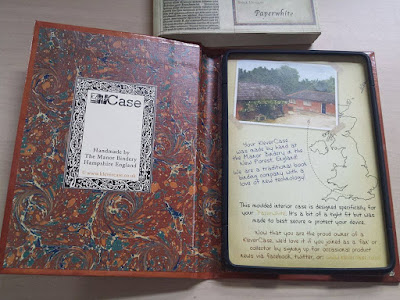 Paperwhite
Case
Handmade by
The Manor Bindery
Hampshire England
Your KleverCase
was made by hand at
the Manor Bindery in the
New Forest, England
We are a traditional book
binding company with a
love of new technology!
This moulded interior case is designed specifically for
your Paperwhite. It's a bit of a tight fit but was
made to best secure & protect your device.
Now that you are the prove owner of a
KleverCase, we'd love it if you joined as a 'fan' or
collector by signing up for occassional product
news via facebook, twitter, or